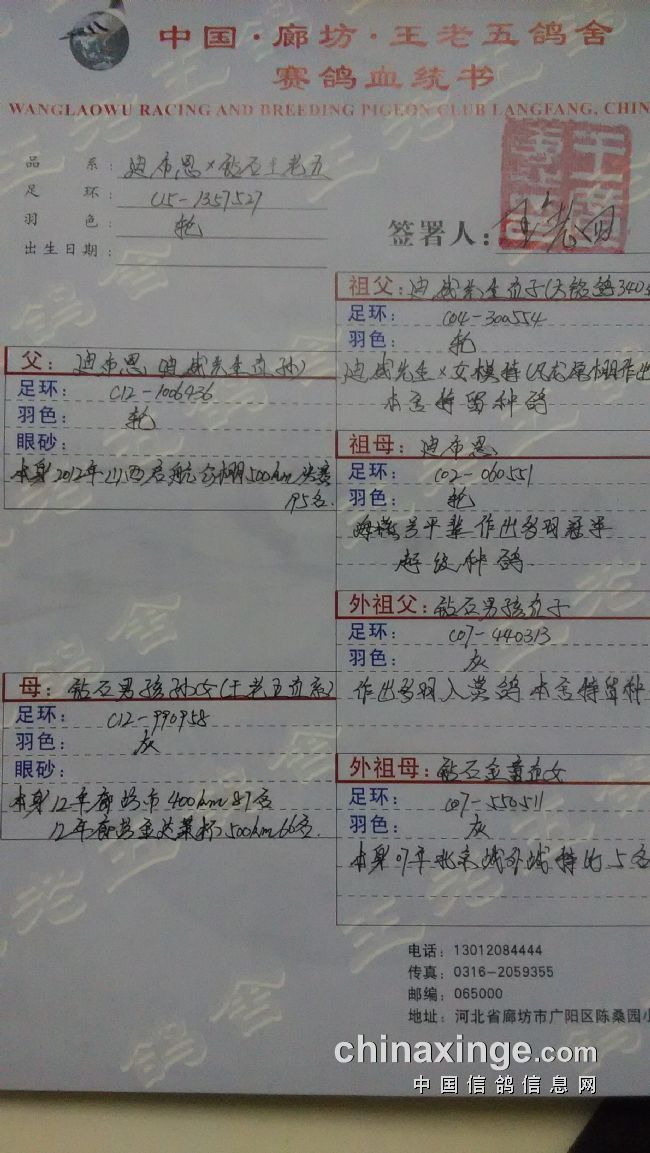 中国·廊坊·王老五鸽舍
赛鸽血统书
WANGLAOWU RACING AND BREEDING PIGEON CLUB LANGFANG, CHIN
品系: 迪布恩×钻石王老五
足环: C15-1357527
羽色: 轮
出生日期:
签署人:
父: 迪布恩
足环: C12-1006436
羽色: 轮
眼砂:
本身2012年山西启航公棚500km决赛
95名.
母: 钻石男孩孙女(王老五直系)
足环: C12-990958
羽色: 灰
眼砂:
本身12年廊坊市400km87名
12年廊坊 500km66名.
祖父: 迪威先生直子
足环: C04-300554
羽色: 轮
迪威先生×女模特 作出
本舍特留种鸽
祖母: 迪布恩
足环: C02-060551
羽色: 轮
平辈作出多羽冠军
超级种鸽
外祖父: 钻石男孩直子
足环: C07-440313
羽色: 灰
作出多羽入赏鸽本舍特留种
外祖母: 钻石 直女
足环: C07-550511
羽色: 灰
本身07年北京 5名
电话: 13012084444
传真: 0316-2059355
邮编: 065000
地址: 河北省廊坊市广阳区陈桑园小
chinaxinge.com
中国信鸽信息网